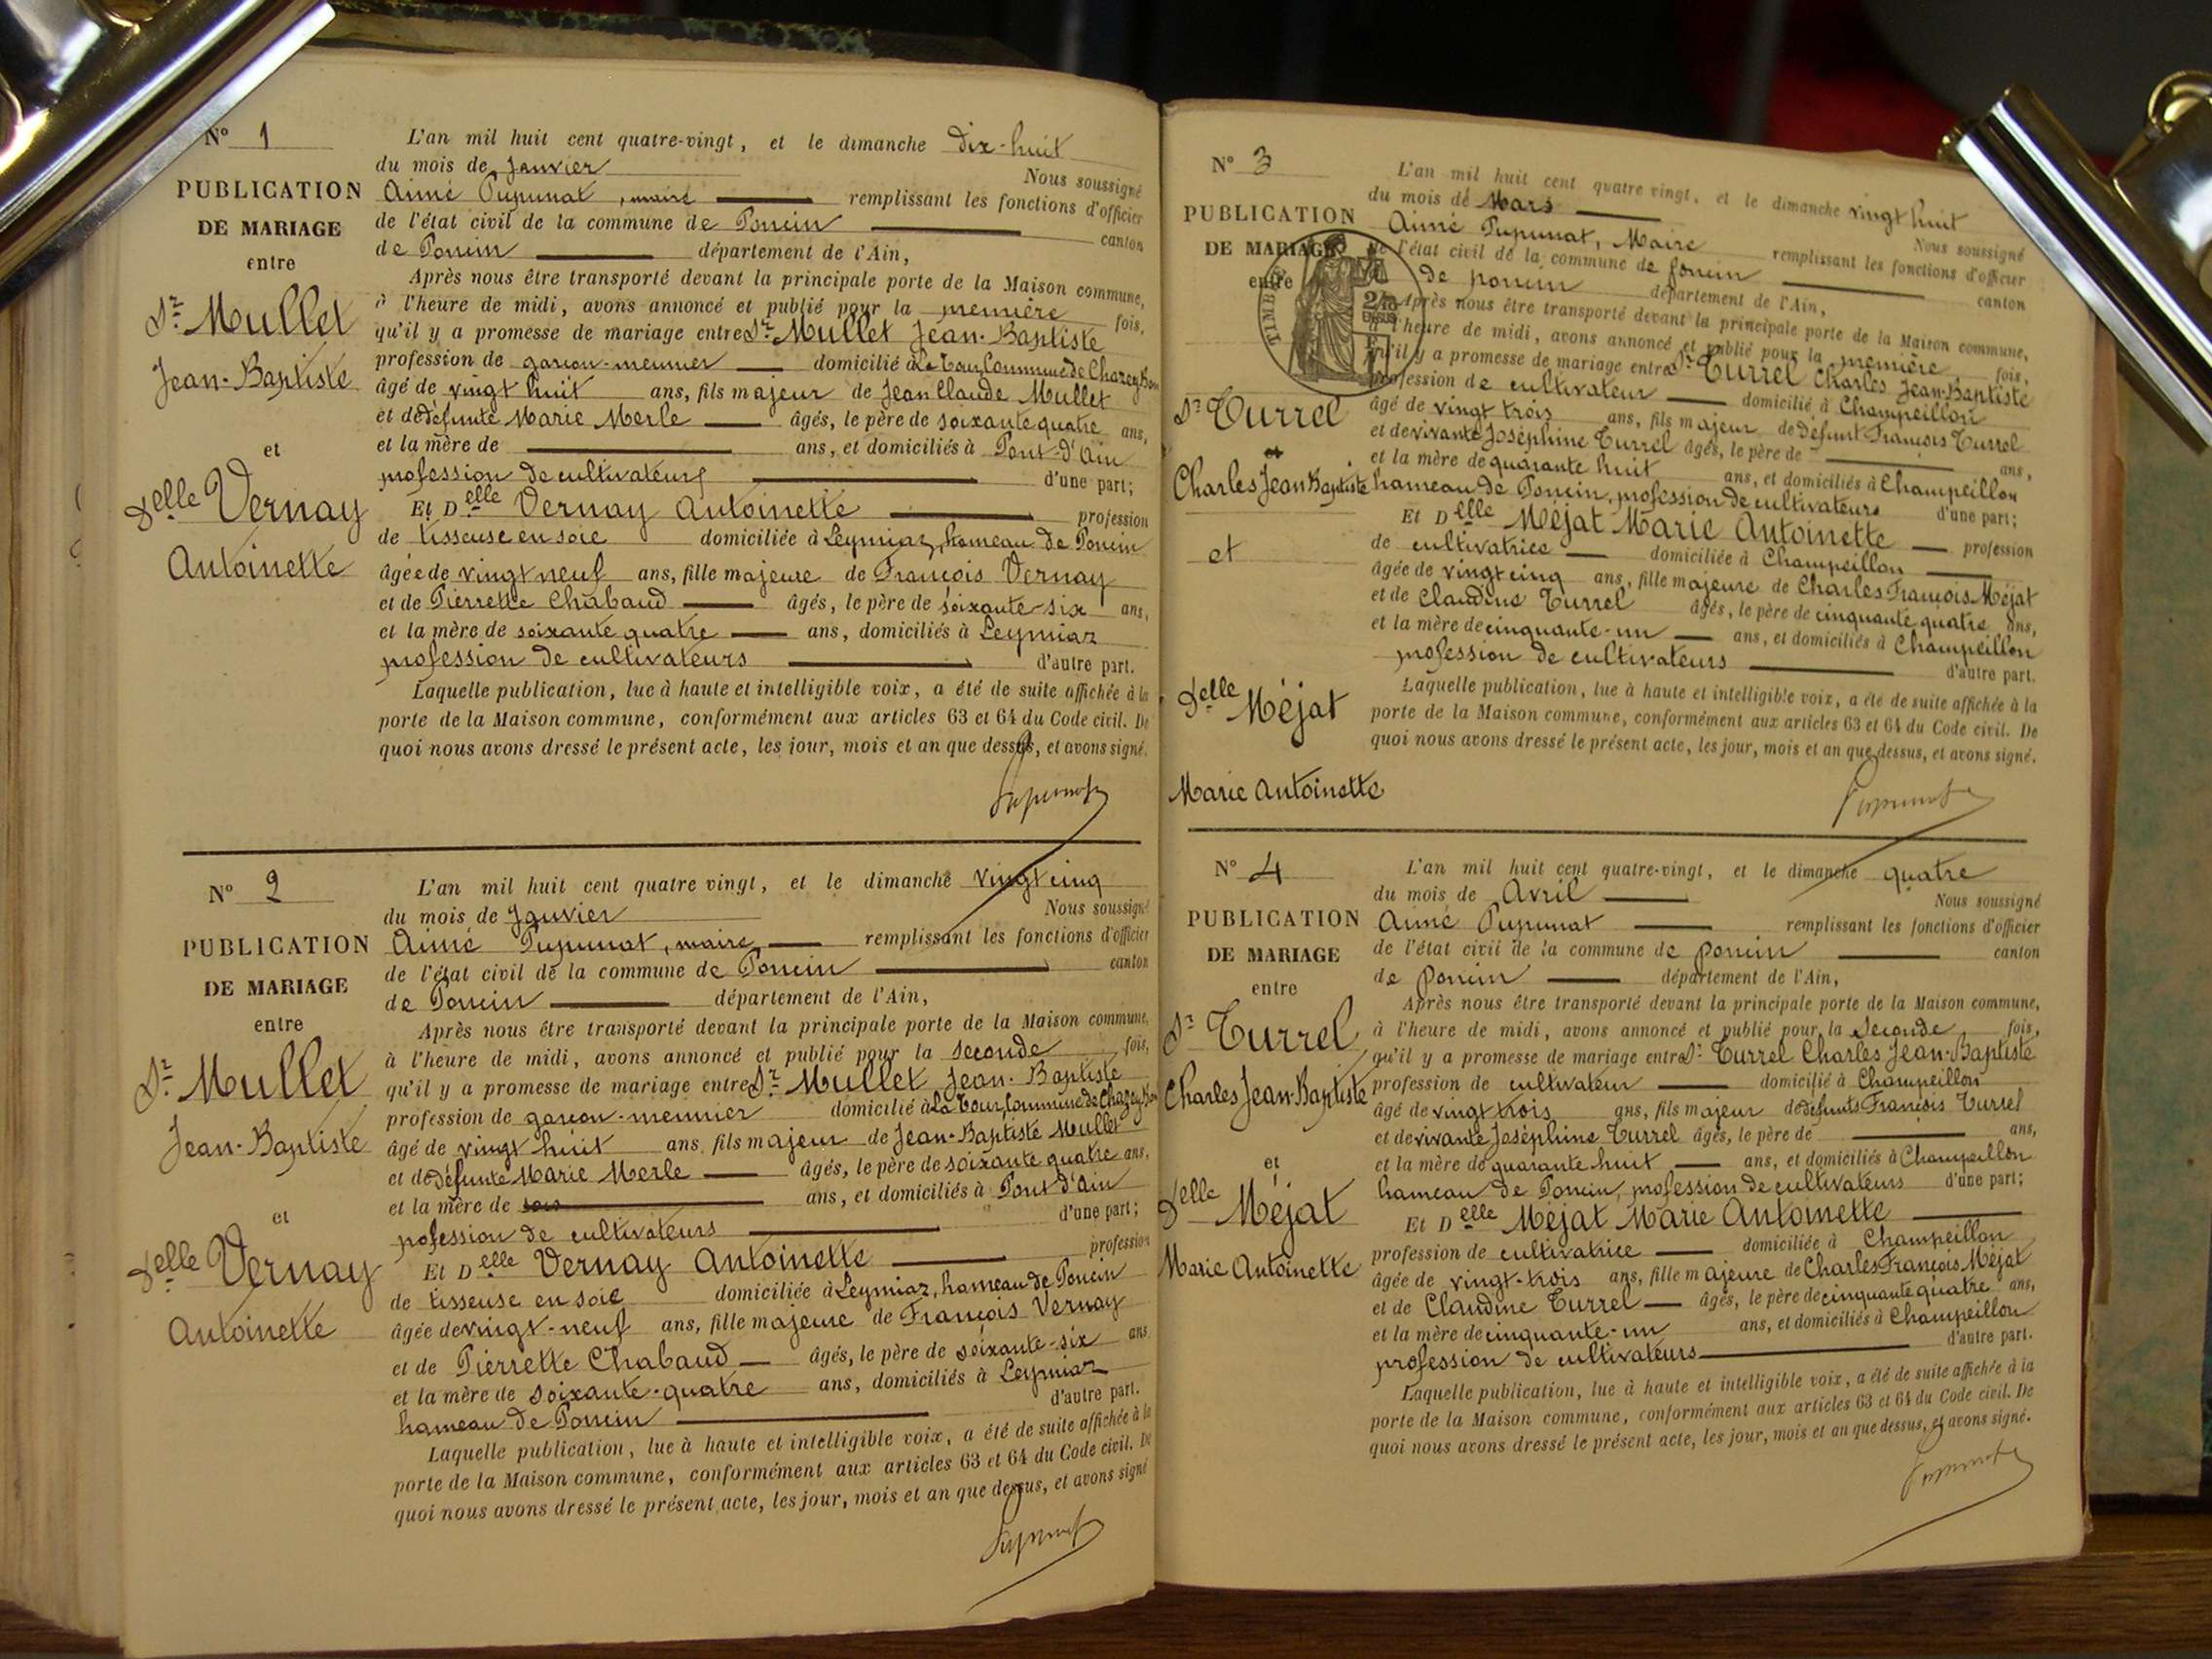 N° 1
PUBLICATION
DE MARIAGE
entre
Sr Mullet
Jean-Baptiste
et
Delle Vernay
Antoinette
L'an mil huit cent quatre-vingt, et le dimanche dix-huit
du mois de Janvier Nous soussigné
Aimé Pupunat, maire remplissant les fonctions d'officier
de l'état civil de la commune de Poncin canton
de Poncin département de l'Ain,
Après nous être transporté devant la principale porte de la Maison commune,
à l'heure de midi, avons annoncé et publié pour la première fois,
qu'il y a promesse de mariage entre Sr Mullet Jean-Baptiste
profession de garcon-meunier domicilié à La Tour, Commune de Chazey
âgé de vingt huit ans, fils majeur de Jean Claude Mullet
et de défunte Marie Merle âgés, le père de soixante quatre ans,
et la mère de ans, et domiciliés à Pont-d'Ain
profession de cultivateurs d'une part;
Et Delle Vernay Antoinette profession
de tisseuse en soie domiciliée à Leymiaz, hameau de Poncin
âgée de vingt neuf ans, fille majeure de François Vernay
et de Pierrette Chabaud âgés, le père de soixante-six ans,
et la mère de soixante quatre ans, domiciliés à Leymiaz
profession de cultivateurs d'autre part.
Laquelle publication, lue à haute et intelligible voix, a été de suite affichée à la
porte de la Maison commune, conformément aux articles 63 et 64 du Code civil. De
quoi nous avons dressé le présent acte, les jour, mois et an que dessus, et avons signé.
Pupunat
N° 2
PUBLICATION
DE MARIAGE
entre
Sr Mullet
Jean-Baptiste
et
Delle Vernay
Antoinette
L'an mil huit cent quatre vingt, et le dimanche vingt cinq
du mois de Janvier Nous soussigné
Aimé Pupunat, maire remplissant les fonctions d'officier
de l'état civil de la commune de Poncin canton
de Poncin département de l'Ain,
Après nous être transporté devant la principale porte de la Maison commune,
à l'heure de midi, avons annoncé et publié pour la seconde fois,
qu'il y a promesse de mariage entre Sr Mullet Jean-Baptiste
profession de garcon-meunier domicilié à La Tour, Commune de Chazey
âgé de vingt huit ans, fils majeur de Jean-Baptiste Mullet
et de défunte Marie Merle âgés, le père de soixante quatre ans,
et la mère de ans, et domiciliés à Pont d'Ain
profession de cultivateurs d'une part;
Et Delle Vernay Antoinette profession
de tisseuse en soie domiciliée à Leymiaz, hameau de Poncin
âgée de vingt-neuf ans, fille majeure de François Vernay
et de Pierrette Chabaud âgés, le père de soixante-six ans
et la mère de soixante-quatre ans, domiciliés à Leymiaz
hameau de Poncin d'autre part.
Laquelle publication, lue à haute et intelligible voix, a été de suite affichée à la
porte de la Maison commune, conformément aux articles 63 et 64 du Code civil. De
quoi nous avons dressé le présent acte, les jour, mois et an que dessus, et avons signé
Pupunat
N° 3
PUBLICATION
DE MARIAGE
entre
TIMBRE
Sr Turrel
Charles Jean Baptiste
et
Delle Méjat
Marie Antoinette
L'an mil huit cent quatre vingt, et le dimanche vingt huit
du mois de Mars Nous soussigné
Aimé Pupunat, Maire remplissant les fonctions d'officier
de l'état civil de la commune de poncin canton
de poncin département de l'Ain,
Après nous être transporté devant la principale porte de la Maison commune,
à l'heure de midi, avons annoncé et publié pour la première fois,
qu'il y a promesse de mariage entre Sr Turrel Charles Jean-Baptiste
profession de cultivateur domicilié à Champeillon
âgé de vingt trois ans, fils majeur de défunt François Turrel
et de vivante Joséphine Turrel âgés, le père de ans,
et la mère de quarante huit ans, et domiciliés à Champeillon
hameau de Poncin, profession de cultivateurs d'une part;
Et Delle Méjat Marie Antoinette profession
de cultivatrice domiciliée à Champeillon
âgée de vingt cinq ans, fille majeure de Charles François Méjat
et de Claudine Turrel âgés, le père de cinquante quatre ans,
et la mère de cinquante-un ans, et domiciliés à Champeillon
profession de cultivateurs d'autre part.
Laquelle publication, lue à haute et intelligible voix, a été de suite affichée à la
porte de la Maison commune, conformément aux articles 63 et 64 du Code civil. De
quoi nous avons dressé le présent acte, les jour, mois et an que dessus, et avons signé.
Pupunat
N° 4
PUBLICATION
DE MARIAGE
entre
Sr Turrel
Charles Jean-Baptiste
et
Delle Méjat
Marie Antoinette
L'an mil huit cent quatre-vingt, et le dimanche quatre
du mois de Avril Nous soussigné
Aimé Pupunat remplissant les fonctions d'officier
de l'état civil de la commune de poncin canton
de poncin département de l'Ain,
Après nous être transporté devant la principale porte de la Maison commune,
à l'heure de midi, avons annoncé et publié pour la seconde fois,
qu'il y a promesse de mariage entre Sr Turrel Charles Jean-Baptiste
profession de cultivateur domicilié à Champeillon
âgé de vingt trois ans, fils majeur de défunts François Turrel
et de vivante Joséphine Turrel âgés, le père de ans,
et la mère de quarante huit ans, et domiciliés à Champeillon
hameau de Poncin, profession de cultivateurs d'une part;
Et Delle Méjat Marie Antoinette
profession de cultivatrice domiciliée à Champeillon
âgée de vingt-trois ans, fille majeure de Charles François Méjat
et de Claudine Turrel âgés, le père de cinquante quatre ans,
et la mère de cinquante-un ans, et domiciliés à Champeillon
profession de cultivateurs d'autre part.
Laquelle publication, lue à haute et intelligible voix, a été de suite affichée à la
porte de la Maison commune, conformément aux articles 63 et 64 du Code civil. De
quoi nous avons dressé le présent acte, les jour, mois et an que dessus, et avons signé.
Pupunat